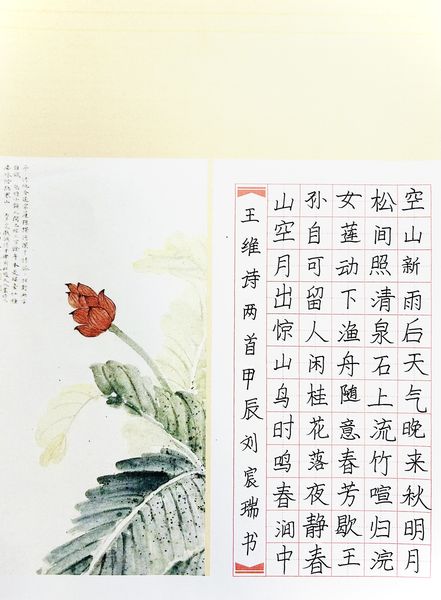 空山新雨后天气晚来秋明月
松间照清泉石上流竹喧归浣
女莲动下渔舟随意春芳歇王
孙自可留人闲桂花落夜静春
山空月出惊山鸟时鸣春涧中
王维诗两首甲辰刘宸瑞书